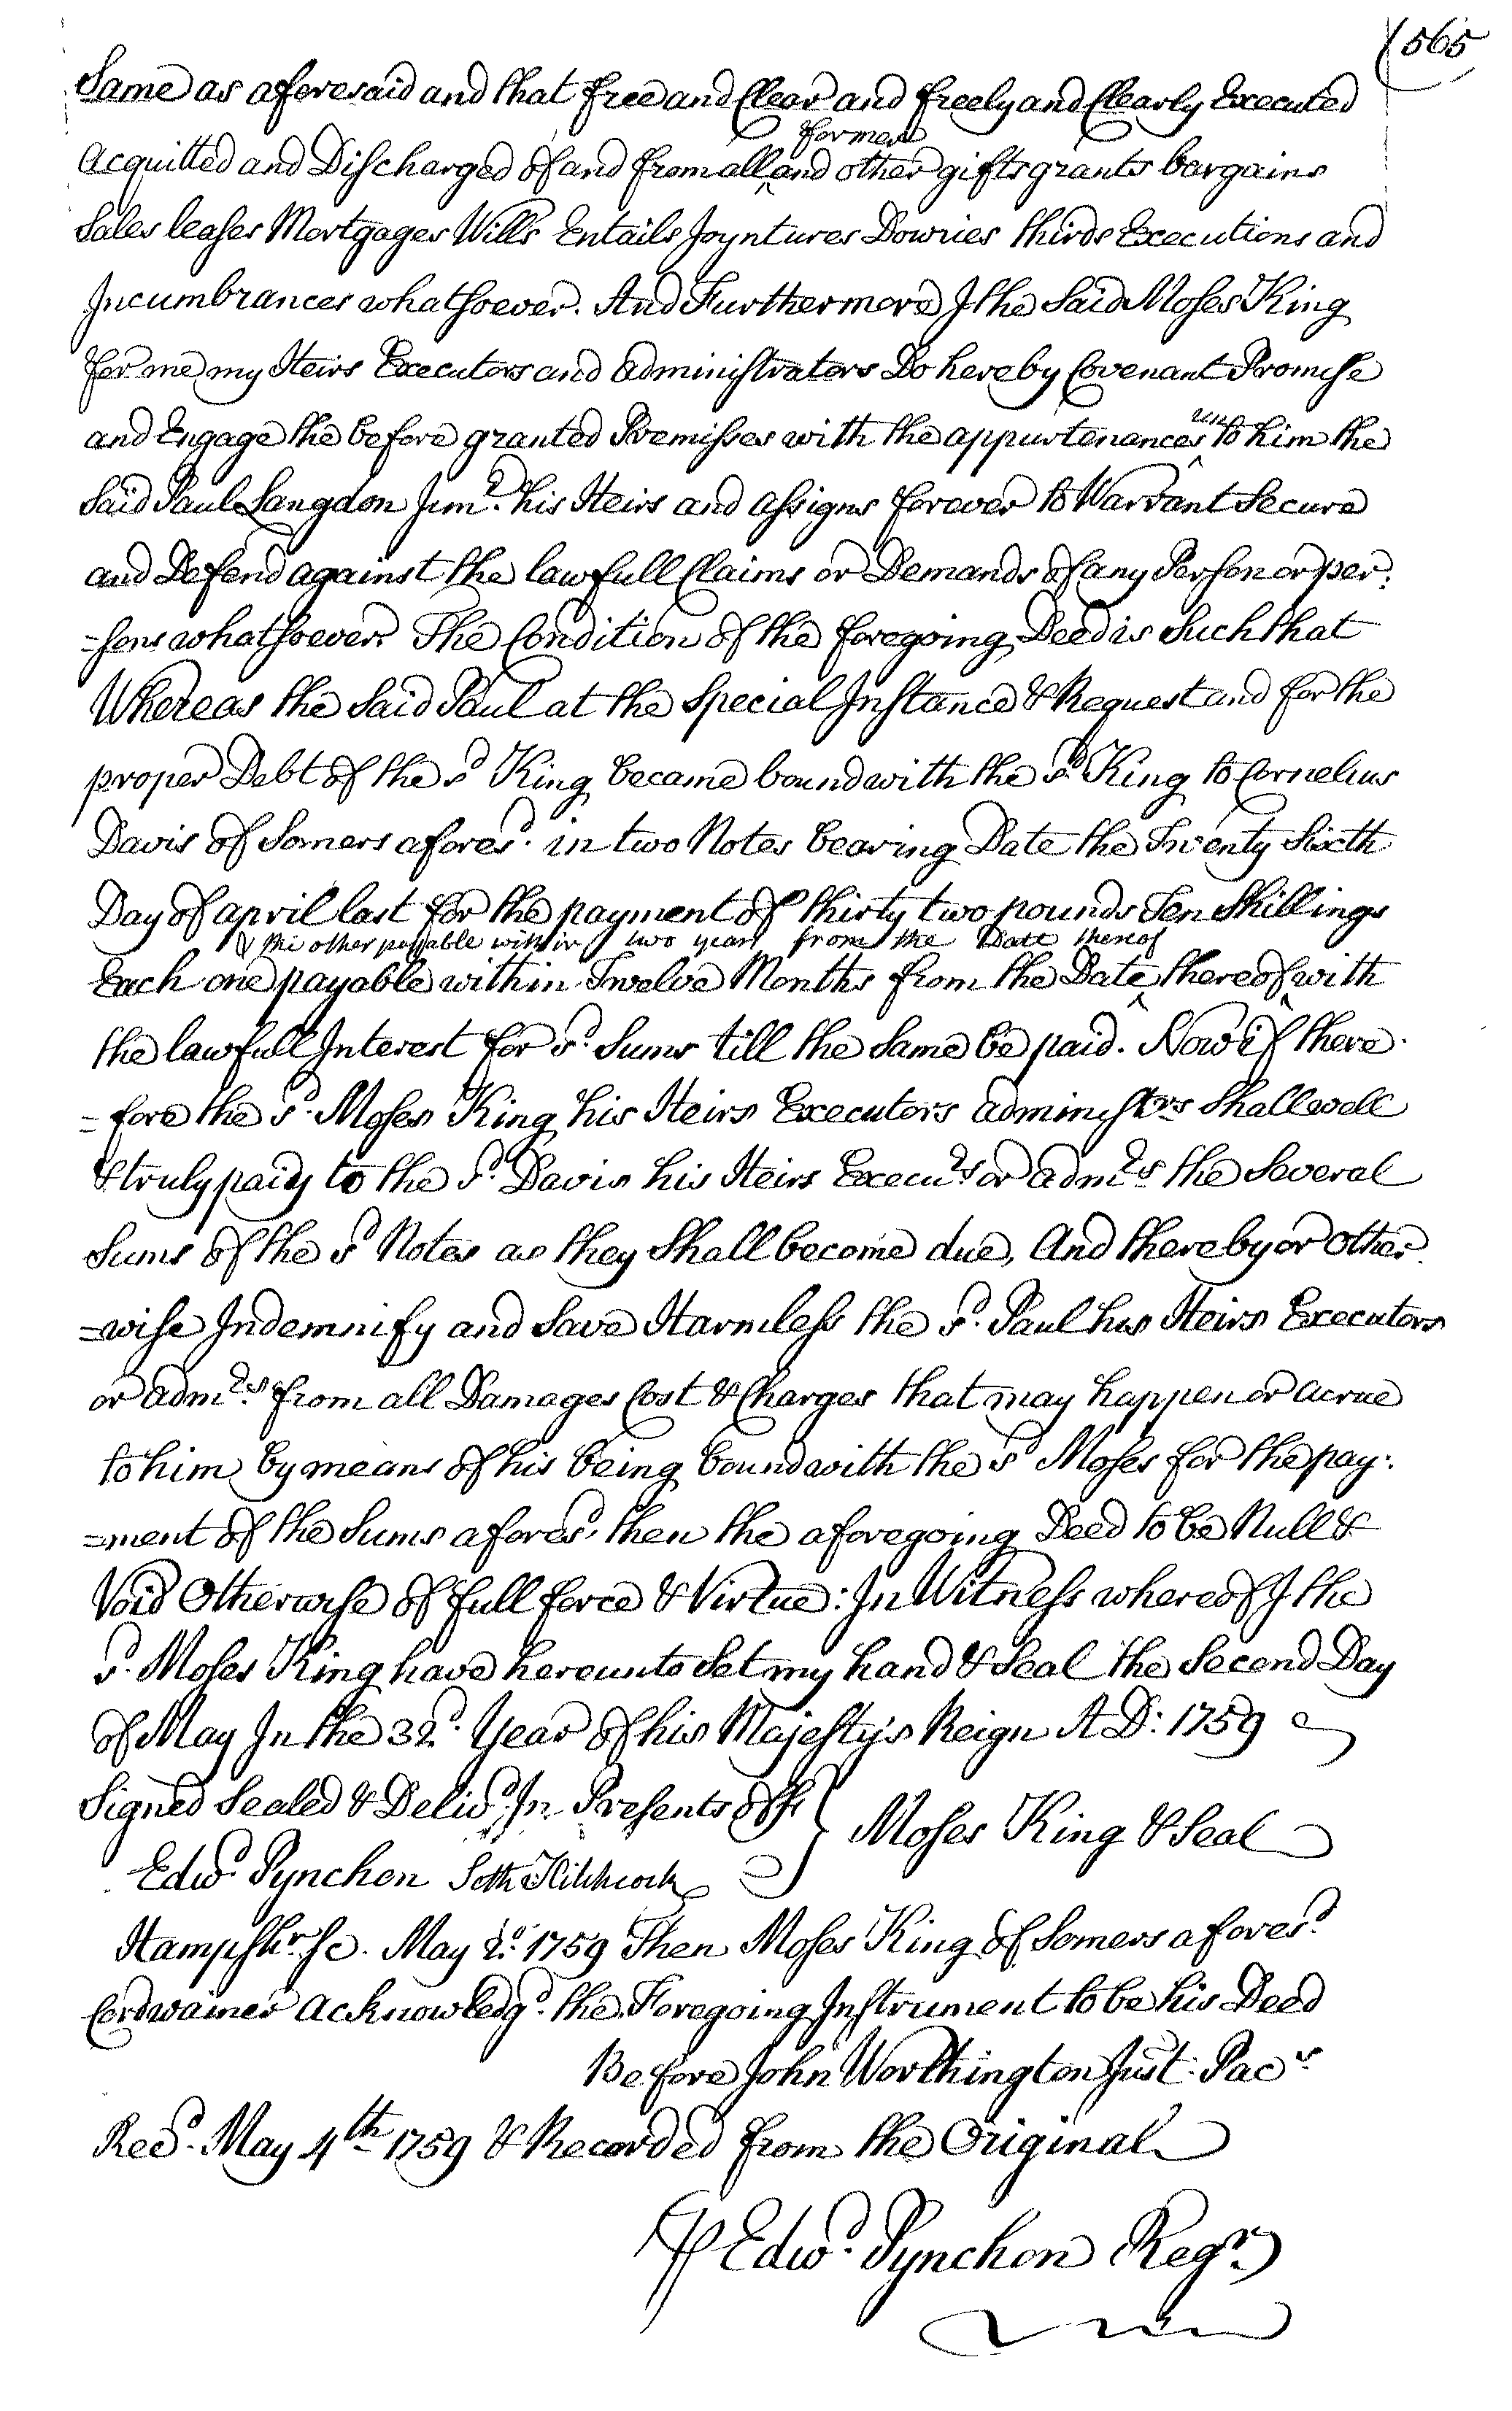 565
Same as aforesaid and that free and Clear and freely and Clearly Executed
former
Acquitted and Discharged of and from all ‸ and other gifts grants bargains
Sales leases Mortgages Wills Entails Joyntures Dowries thirds Executions and
Incumbrances whatsoever. And Furthermore I the Said Moses King
for me my Heirs Executors and Administrators Do hereby Covenant Promise
un
and Engage the before granted Premisses with the appurtenances ‸ to him the
Said Paul Langdon Junr. his Heirs and Assigns forever to Warrant Secure
and Defend against the lawfull Claims or Demands of any Person or per:
=sons whatsoever. The Condition of the foregoing Deed is Such that
Whereas the Said Paul at the Special Instance & Request and for the
proper Debt of the sd King became bound with the sd. King to Cornelius
Davis of Somers afores.d in two Notes bearing Date the Twenty Sixth
Day of April last for the payment of thirty two pounds Ten Shillings
& the other payable within two years from the Date thereof
Each one payable within Twelve Months from the Date ‸ thereof ‸ with
the lawfull Interest for sd. Sums till the Same be paid. Now if there-
=fore the sd. Moses King his Heirs Executors Administrs Shall well
& truly paiy to the sd. Davis his Heirs Execurs or Admrs the Several
Sums of the sd Notes as they Shall become due, And thereby or other
=wise Indemnify and Save Harmless the sd. Paul his Heirs Executors
or Admrs. from all Damages Cost & Charges that may happen or acrue
to him by means of his being bound with the sd Moses for the pay:
=ment of the Sums aforesd. then the aforegoing Deed to be Null &
Void Otherwise of full force & Virtue: In Witness whereof I the
sd. Moses King have hereunto Set my hand & Seal the Second Day
of May In the 32d. Year of his Majesty's Reign A D: 1759
Signed Sealed & Delivd. In Presents off } Moses King & Seal
Edwd. Pynchon Seth Hitchcock
Hampshr. Sc. May 2d. 1759 Then Moses King of Somers aforesd.
Cordwainer Acknowledgd. the Foregoing Instrument to be his Deed
Before John Worthington Just: Pacs
Recd. May 4th 1759 & Recorded from the Original
P Edwd. Pynchon Regr.